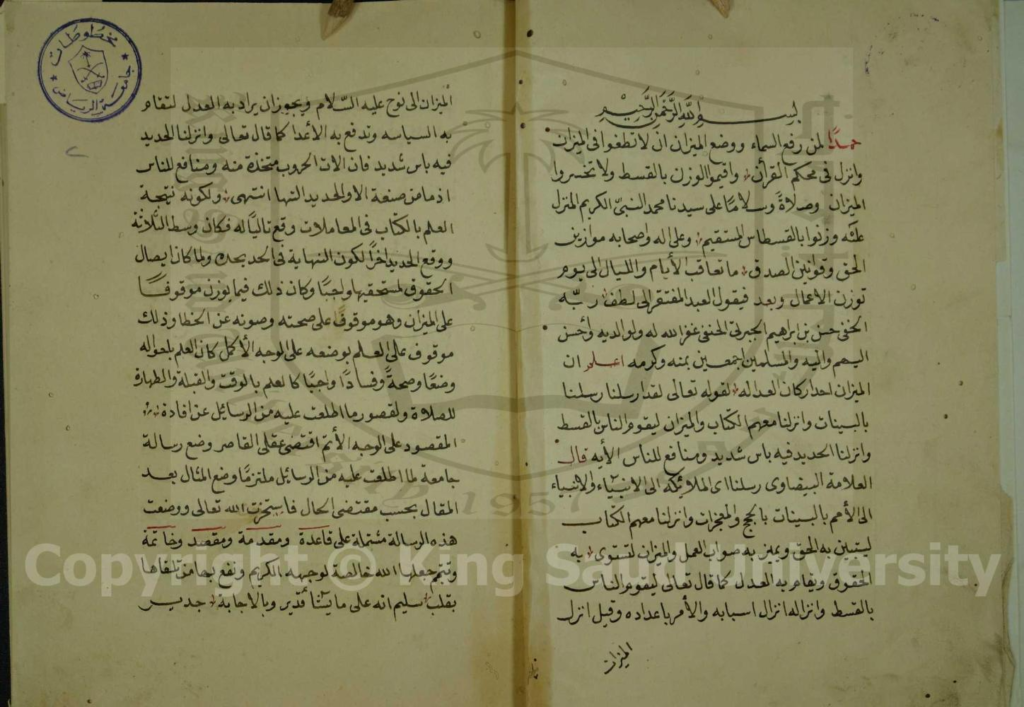 بسم الله الرحمن الرحيم
حمدا لمن رفع السماء ووضع الميزان ان لا تطغوا فى الميزان
وانزل فى محكم القرأن واقيموا الوزن بالقسط ولا تخسروا
الميزان وصلاةً وسلامًا على سيدنا محمد النبيّ الكريم المنزل
عليه وزنوا بالقسطاس المستقيم وعلى اله واصحابه موازين
الحق وقوانين الصدق ما تعاقب الأيام والليال الى يوم
توزن الاعمال وبعد فيقول العبد المفتقر الى لطف ربّه
الخفى حسن بن ابراهيم الجبرتى الحنفى غفر الله له ولوالديه وأحسن
اليهم واليه والمسلمين اجمعين بمنه وكرمه اعلم ان
الميزان احد اركان العداله لقوله تعالى لقد ارسلنا رسلنا
بالبينات وانزلنا معهم الكتاب والميزان ليقوم الناس بالقسط
وانزلنا الحديد فيه باس شديد ومنافع للناس الأيه قال
العلامة البيضاوى رسلنا اى الملائكه الى الانبياء او الانبياء
الى الأمم بالبينات بالحجج والمعجزات وانزلنا معهم الكتاب
ليتبين به الحق ويميز به صواب العمل والميزان لتستوى به
الحقوق ويقام به العدل كما قال تعالى ليقوم الناس
بالقسط وانزاله انزال اسبابه والأمر باعداده وقيل انزل
الميزان
الميزان الى نوح عليه السّلام ويجوز ان يراد به العدل لتقام
به السياسه وتدفع به الأعدا كما قال تعالى وانزلنا الحديد
فيه باس شديد فان الات الحروب متخذة منه ومنافع للناس
اذ ما من صنعة الا والحديد التها انتهى ولكونه نتيجة
العلم بالكتاب فى المعاملات وقع تاليًا له فكان وسط الثلاثة
ووقع الحديد اخرًا لكون النهاية فى الحد بحده ولما كان ايصال
الحقوق لمستحقيها واجبًا وكان ذلك فيما يوزن موقوفًا
على الميزان وهو موقوف على صحته وصونه عن الخطا وذلك
موقوف على العلم بوضعه على الوجه الأكمل كان العلم باحواله
وضعًا وصحةً وفسادًا واجبًا كالعلم بالوقت والقبلة والطهارة
للصلاة ولقصور ما اطلعت عليه من الرسايل عن افادة
المقصود على الوجه الأتم اقتضى عقلى القاصر وضع رسالة
جامعة لما اطلعت عليه من الرسايل ملتزمًا وضع المثال بعد
المقال بحسب مقتضى الحال فاستخرت الله تعالى ووضعت
هذه الرسالة مشتملة على قاعدة ومقدمة ومقصد وخاتمة
جعلها الله خالصة لوجهه الكريم ونفع بها من تلقاها
بقلب سليم انه على ما يشأ قدير وبالاجابة جدير
مخطوطات
جامعة الرياض
1957
Copyright © King Saud University